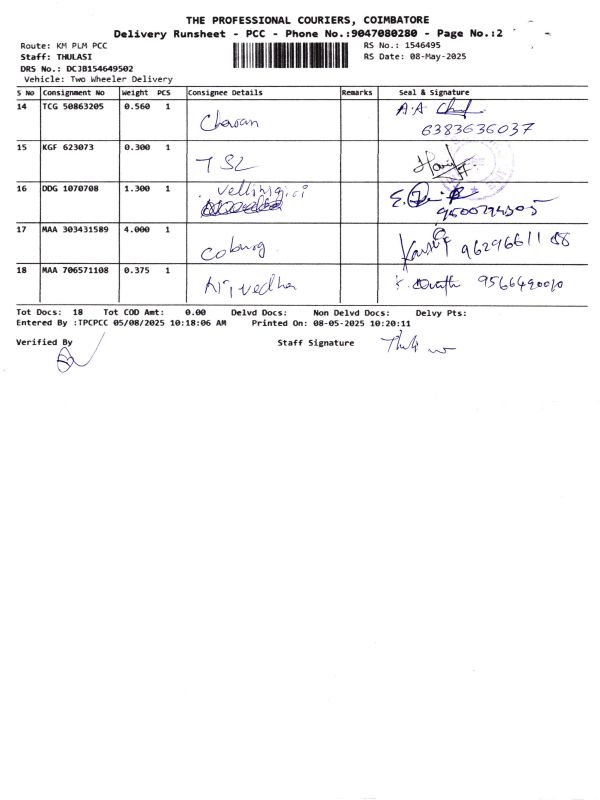 THE PROFESSIONAL COURIERS, COIMBATORE
Delivery Runsheet - PCC - Phone No.:9047080280 - Page No.:2
Route: KM PLM PCC
RS No.: 1546495
Staff: THULASI
RS Date: 08-May-2025
DRS No.: DCJB154649502
Vehicle: Two Wheeler Delivery
S No Consignment No Weight PCS Consignee Details Remarks Seal & Signature
14 TCG 50863205 0.560 1 A.A
6383636037
15 KGF 623073 0.300 1 TSL
16 DDG 1070708 1.300 1 Vellingiri
17 MAA 303431589 4.000 1 Coburg
18 MAA 706571108 0.375 1
Tot Docs: 18 Tot COD Amt: 0.00 Delvd Docs: Non Delvd Docs: Delvy Pts:
Entered By :TPCPCC 05/08/2025 10:18:06 AM Printed On: 08-05-2025 10:20:11
Verified By Staff Signature